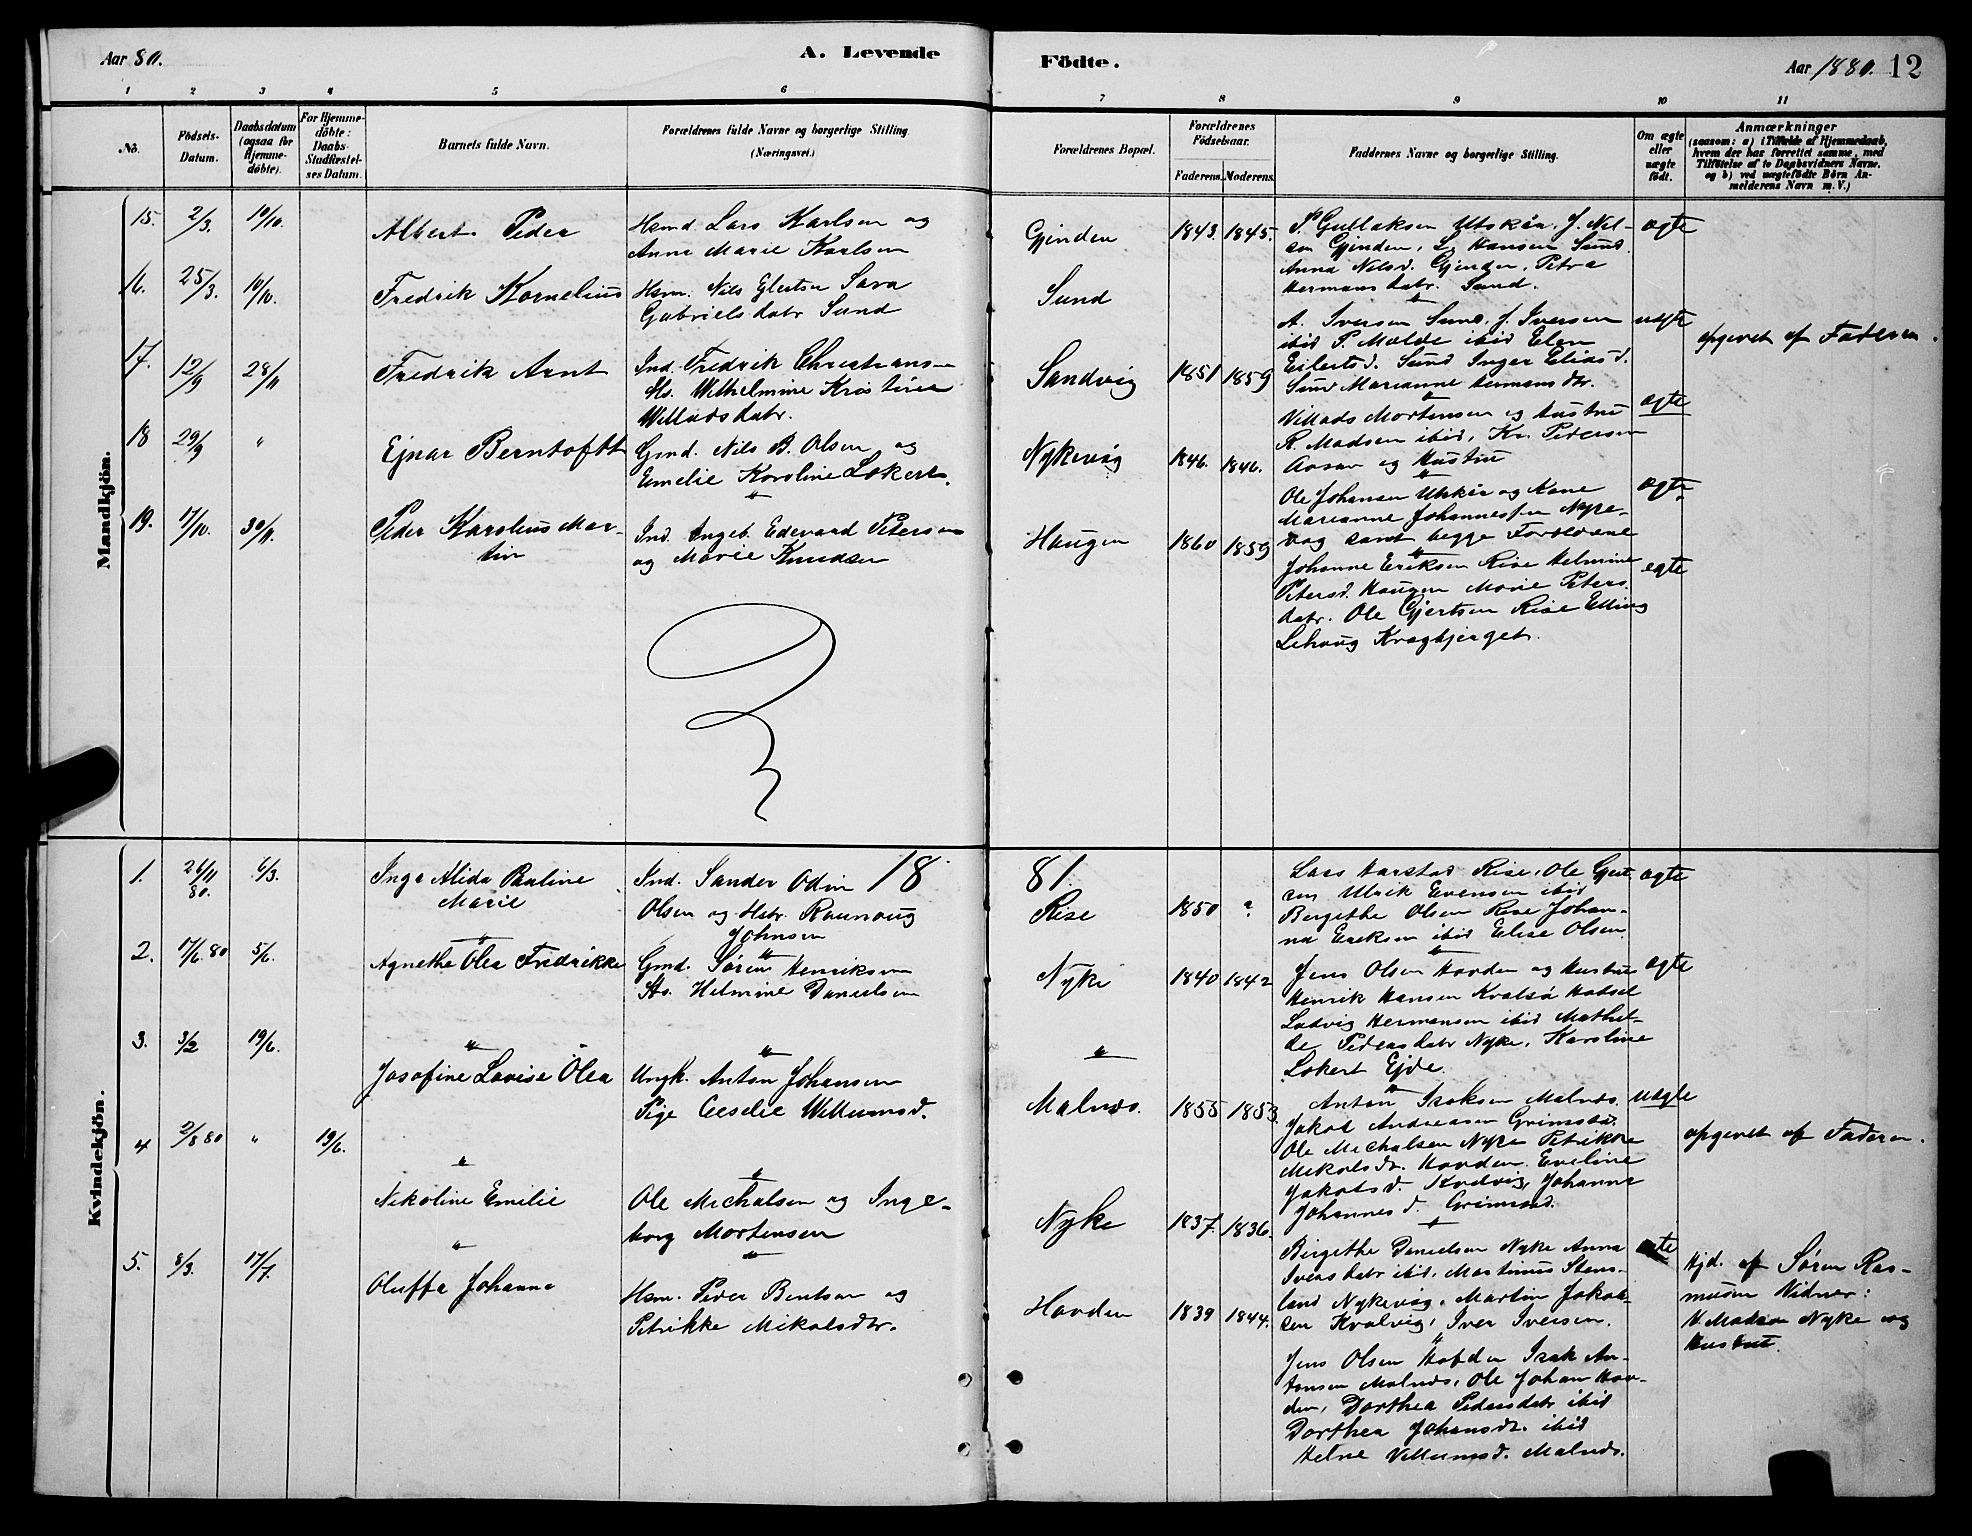 Aar 80.
A. Levende
Födte.
Aar 1880. 12
1 2 3 4 5 6 7 8 9 10 11
No.
Födsels-
Datum.
Daabsdatum
(ogsaa for
Hjemme-
döbte).
For Hjemme-
döbte:
Daabs-
Stadfæstel-
ses Datum.
Barnets fulde Navn.
Forældrenes fulde Navne og borgerlige Stilling
(Næringsvei.)
Forældrenes Bopæl.
Forældrenes
Födselsaar.
Faderens. Moderens.
Faddernes Navne og borgerlige Stilling.
Om ægte
eller
uægte
födt.
Anmærkninger
(saasom: a) i Tilfælde af Hjemmedaab,
hvem der har forrettet samme, med
Tilföielse af to Daabsvidners Navne,
og b) ved uægtefödte Börn An-
melderens Navn m. V.)
Mandkjön.
15. 2/3. 10/10.
Albert Peder
Hsmd. Lars Karlsen og
Anne Marie Karlsen
Gjinden
1843. 1845.
P Gullaksen Utskår. J. Nil-
sen Gjinden, L. Hansen Sund
Anna Nilsd. Gjinden, Petra
Hermansdatr. Sund.
ægte
16. 25/3. 10/10.
Fredrik Kornelius
Hsm. Nils Elertsen Sara
Gabrielsdatr Sund
Sund
A. Iversen Sund, J. Iversen
ibid P. Molde ibid Elen
Eilertsd. Sund Inger Eliasd.
Sund Marianne Hermansdtr.
uægte
opgivet af Faderen.
17. 12/9 28/11
Fredrik Arnt
Ind. Fredrik Christians-
Hs. Wilhelmine Kristine
Willadsdatr.
Sandvig
1851 1859
Villads Mortensen og Hustru
R. Madsen ibid, Kr. Pedersen
Aasan og Hustru
ægte
18 29/9 "
Ejnar Berntoft
Gmd. Nils B. Olsen og
Emelie Karoline Lokert.
Nykevåg
1846. 1846.
Ole Johansen Utskår og Kone
Marianne Johannessen Nyke-
vag samt begge Foreldrene
ægte
19. 17/10. 30/11.
Peder Karolius Mar-
tin
Ind. Ingeb. Edevard Petersen
og Marie Knudsen
Haugen
1860 1859
Johanne Eriksen Rise Helmine
Petersd. Haugen Marie Peters
datr. Ole Gjertsen Rise Elling
Lehaug Kragbjerget.
ægte
Kvindekjön.
1. 26/11 80. 6/3.
Inga Alida Pauline
Marie
Ind. Sander Odin
Olsen og Hstr. Raunaug
Johnsen
18
81.
Rise
1850 ?
Lars Harstad Rise, Ole Gjert
sen Ulrik Evensen ibid
Bergithe Olsen Rise Johan-
na Eriksen ibid Elise Olsen
ægte
2. 17/6 80 5/6.
Agnethe Olea Fredrikke
Gmd. Søren Henriksen
Hs. Helmine Danielsen
Nyke
1840 1842
Jens Olsen Hovden og Hustru
Henrik Hansen Kvalsø Hadsel
Ludvig Hermansen ibid Mathil-
de Pedersdatr Nyke, Karoline
Lokert Ejde.
ægte
3. 3/2 19/6.
Josefine Lovise Olea
Ungk. Anton Johansen
Pige Ceselie Willumsd.
Malnes.
1855 1853
Anton Isaksen Malnes.
Jakob Andreasen Grimstad.
Ole Michalsen Nyke Petrikke
Mikalsdr. Hovden Eveline
Jakobsd. Kvalvig, Johanna
Johannesd. Grimstad.
uægte
opgivet af Faderen.
4 2/8 80 " 19/6.
Nikoline Emilie
Ole Michalsen og Inge-
borg Mortensen
Nyke
1837. 1836.
Birgithe Danielsen Nyke Anna
Iversdatr ibid. Martinus Stens-
land Nykevåg. Martin Jakob-
sen Kvalvig, Iver Iversen.
ægte
Hjd. af Søren Ras-
musen Vidner:
H Madsen Nyke og
Hustru.
5. 8/3. 17/7.
Oluffa Johanna
Hsm. Peder Bentsen og
Petrikke Mikalsdtr.
Hovden
1839 1844.
Jens Olsen Hofden Isak An-
tonsen Malnes, Ole Johan Hov-
den, Dorthea Pedersdatr ibid
Dorthea Johansdr. ibid
Heline Villumsd. Malnes.